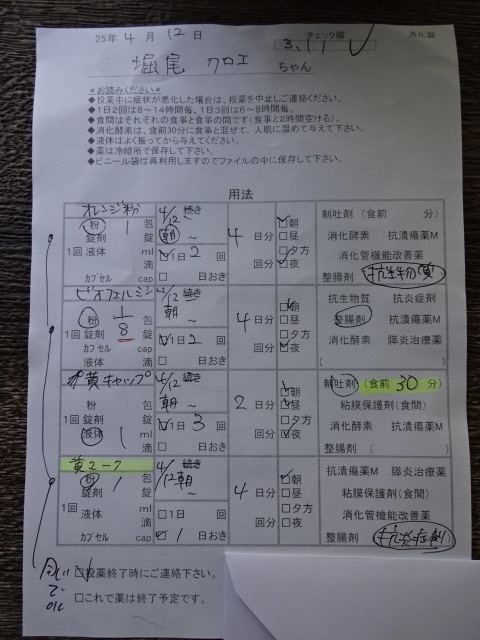 25年 4 月 12 日
チェック欄
消化器
3.11
堀尾 クロエ ちゃん
＊お読みください＊
◆投薬中に症状が悪化した場合は、投薬を中止しご連絡ください。
◆1日2回は8～14時間毎、1日3回は6～8時間毎。
◆食間はそれぞれの食事と食事の間です(食事と2時間空ける)。
◆消化酵素は、食前30分に食事と混ぜて、人肌に温めて与えて下さい。
◆液体はよく振ってから与えてください。
◆薬は冷暗所で保存して下さい。
◆ビニール袋は再利用しますのでファイルの中に保存して下さい。
用法
オレンジ粉 4/12 続き
粉 1 包 朝 ～ 4 日分 朝 制吐剤(食前 分)
錠剤 錠 昼 消化酵素 抗潰瘍薬M
1回 液体 ml 1日 2 回 回分 夕方 消化管機能改善薬
滴 夜
カプセル cap 日おき 整腸剤 抗生物質
ビオフェルミン 4/12 続き
粉 1/8 包 朝 ～ 4 日分 朝 抗生物質 抗炎症剤
1回 錠剤 錠 昼 整腸剤 抗潰瘍薬M
カプセル cap 1日 2 回 回分 夕方 消化酵素 膵炎治療薬
液体 滴 日おき 夜 ( )
黄キャップ 4/12 続き
粉 包 朝～ 2 日分 朝 制吐剤(食前 30 分)
1回 錠剤 錠 昼 粘膜保護剤(食間)
液体 1 ml 1日 3 回 回分 夕方 消化酵素 抗潰瘍薬M
滴 日おき 夜 整腸剤 ( )
黄マーク 4/12 続き
粉 1 包 朝～ 4 日分 朝 抗潰瘍薬M 膵炎治療薬
錠剤 錠 昼 粘膜保護剤(食間)
1回 液体 ml 1日 回 回分 夕方 消化管機能改善薬
滴 夜
カプセル cap 1 日おき 整腸剤 抗炎症剤
投薬終了時にご連絡下さい。
これで薬は終了予定です。